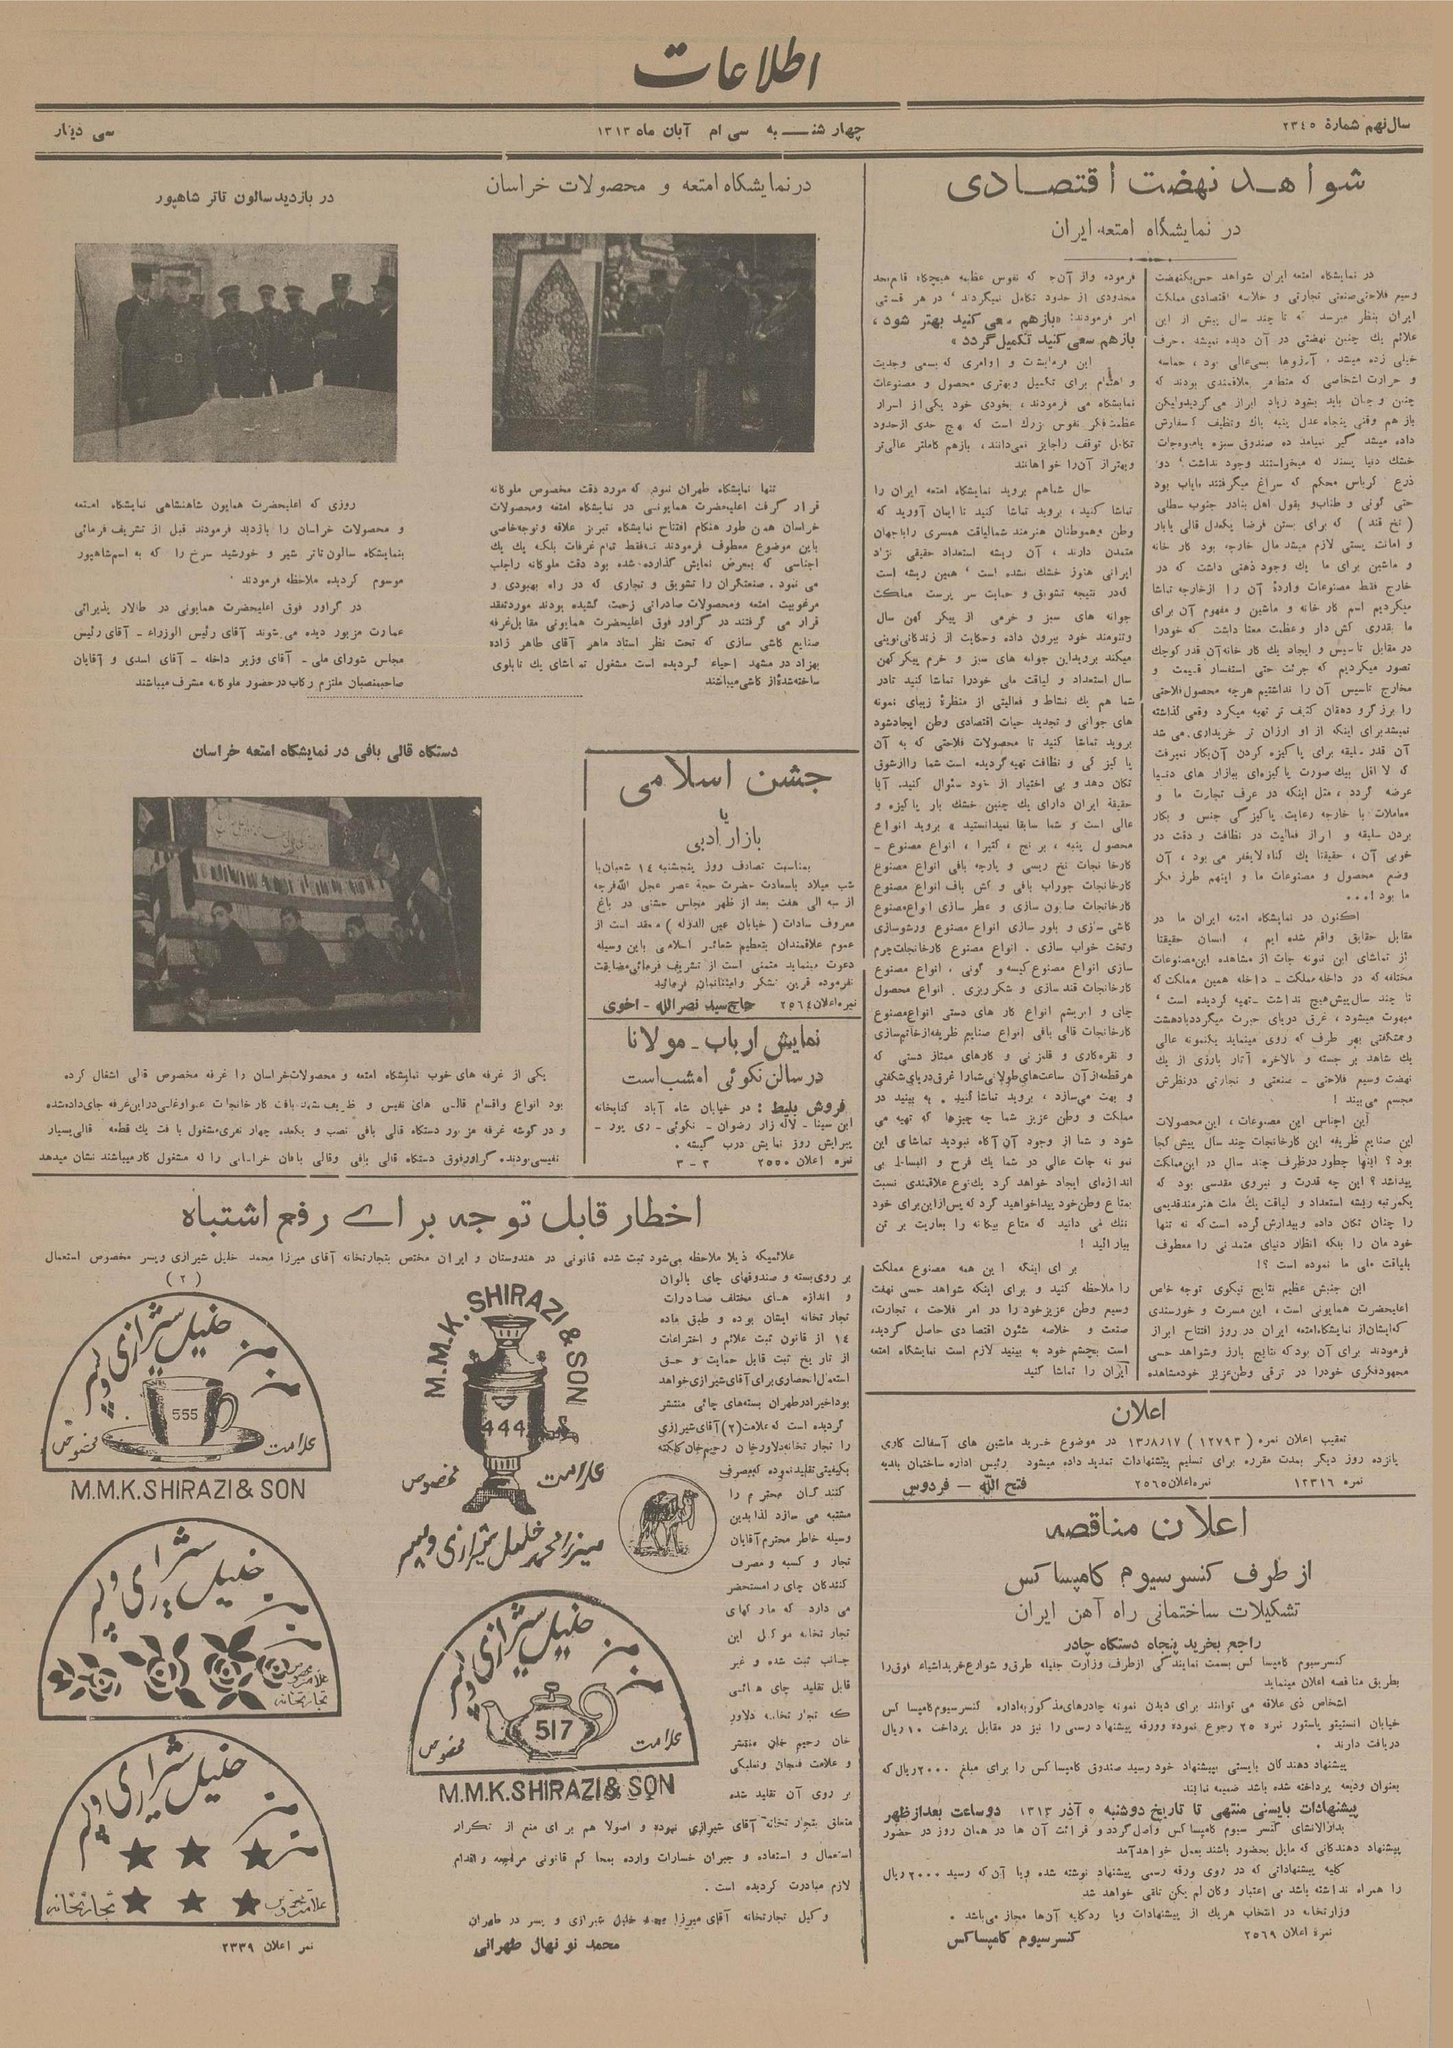 اطلاعات
سال نهم شمارهٔ ۲۳٤۵
چهارشنبه سی ام آبان ماه ۱۳۱۳
سی دینار
شواهد نهضت اقتصادی
در نمایشگاه امتعه ایران
در نمایشگاه امتعه ایران شواهد حس یکنهضت
وسیع فلاحتی صنعتی تجارتی و خلاصه اقتصادی مملکت
ایران بنظر میرسد که تا چند سال پیش از این
علائم یك چنین نهضتی در آن دیده نمیشد . حرف
خیلی زده میشد ، آرزوها بسی عالی بود ، حماسه
چنین و چنان باید بشود زیاد ابراز می گردید ولیکن
باز هم وقتی پنجاه عدل پنبه پاك و نظیف که سفارش
خشك دنیا پسند که میخواستند وجود نداشت ؛ دو
ذرع کرباس محکم که سراغ میگرفتند نایاب بود
( نخ قند ) که برای بستن فرضا یکعدل قالی یا بار
و امانت پستی لازم میشد مال خارجه بود کار خانه
و ماشین برای ما یك وجود ذهنی داشت که در
خارج فقط مصنوعات واردهٔ آن را از خارجه تماشا
میکردیم اسم کار خانه و ماشین و مفهوم آن برای
در مقابل تاسیس و ایجاد یك کار خانه آن قدر کوچك
تصور میکردیم که جرئت حتی استفسار قیمت و
مخارج تاسیس آن را نداشتیم هرچه محصول فلاحتی
را برزگر و دهقان کثیف تر تهیه میکرد وقعی گذاشته
نمیشد برای اینکه از او ارزان تر خریداری می شد
آن قدر سلیقه برای پاکیزه کردن آن بکار نمیرفت
که لااقل بیك صورت پاکیزه‌ای ببازار های دنیا
عرضه گردد ، مثل اینکه در عرف تجارت ما و
معاملات با خارجه رعایت پاکیزگی جنس و بکار
بردن سلیقه و ابراز فعالیت در نظافت و دقت در
خوبی آن ، حقیقتا یك گناه لایغفر می بود ، آن
وضع محصول و مصنوعات ما و اینهم طرز فکر
ما بود ! . . .
اکنون در نمایشگاه امتعه ایران ما در
مقابل حقایق واقع شده ایم ، انسان حقیقتا
از تماشای این نمونه جات از مشاهده این مصنوعات
مختلفه که در داخله مملکت - داخله همین مملکت که
تا چند سال پیش هیچ نداشت - تهیه گردیده است ؛
مبهوت میشود ، غرق دریای حیرت میگردد با دهشت
و شگفتی بهر طرف که روی مینماید یکنمونه عالی
یك شاهد بر جسته و بالاخره آثار بارزی از یك
نهضت وسیع فلاحتی - صنعتی و تجارتی در نظرش
مجسم می بیند !
این اجناس این مصنوعات ، این محصولات
این صنایع ظریفه این کارخانجات چند سال پیش کجا
بود ؟ اینها چطور در ظرف چند سال در این مملکت
پیدا شد ؟ این چه قدرت و نیروی مقدسی بود که
یکمرتبه ریشه استعداد و لیاقت یك ملت هنرمند قدیمی
را چنان تکان داده و بیدارش کرده است که نه تنها
خودمان را بلکه انظار دنیای متمدنی را معطوف
بلیاقت ملی ما نموده است ؟!
این جنبش عظیم نتایج نیکوی توجه خاص
اعلیحضرت همایونی است ، این مسرت و خورسندی
که ایشان از نمایشگاه امتعه ایران در روز افتتاح ابراز
فرمودند برای آن بود که نتایج بارز و شواهد حسی
مجهود فکری خود را در ترقی وطن عزیز خود مشاهده
فرموده و از آن جا که نفوس عظیمه هیچگاه قائم بحد
محدودی از حدود تکامل نمیگردند ؛ در هر قسمتی
امر فرمودند : «باز هم سعی کنید بهتر شود ،
باز هم سعی کنید تکمیل گردد»
این فرمایشات و اوامری که بسمی وجدیت
و اهتمام برای تکمیل و بهتری محصول و مصنوعات
نمایشگاه می فرمودند ، بخودی خود یکی از اسرار
عظمت فکر نفوس بزرك است که هیچ حدی از حدود
تکامل توقف را جایز نمی‌دانند ، باز هم کاملتر عالی‌تر
و بهتر از آن را خواهانند
حال شما هم بروید نمایشگاه امتعه ایران را
تماشا کنید ، بروید تماشا کنید تا ایمان آورید که
وطن و هموطنان هنرمند شما لیاقت همسری را با جهان
متمدن دارند ، آن ریشه استعداد حقیقی نژاد
ایرانی هنوز خشك نشده است ؛ همین ریشه است
که در نتیجه تشویق و حمایت سر پرست مملکت
جوانه های سبز و خرمی از پیکر کهن سال
و تنومند خود بیرون داده و حکایت از زندگانی نوینی
میکند بروید این جوانه های سبز و خرم پیکر کهن
سال استعداد و لیاقت ملی خود را تماشا کنید تا در
شما هم یك نشاط و فعالیتی از منظرهٔ زیبای نمونه
های جوانی و تجدید حیات اقتصادی وطن ایجاد شود
بروید تماشا کنید تا محصولات فلاحتی که به آن
پاکیزگی و نظافت تهیه گردیده است شما را از شوق
تکان دهد و بی اختیار از خود سئوال کنید آیا
حقیقة ایران دارای یك چنین خشك بار پاکیزه و
عالی است و شما سابقا نمیدانستید » بروید انواع
محصول پنبه ، برنج ، کتیرا ، انواع مصنوع -
کارخانجات نخ ریسی و پارچه بافی انواع مصنوع
کارخانجات جوراب بافی و کش باف انواع مصنوع
کارخانجات صابون سازی و عطر سازی انواع مصنوع
کاشی سازی و بلور سازی انواع مصنوع ورشو سازی
و تخت خواب سازی . انواع مصنوع کارخانجات چرم
سازی انواع مصنوع کیسه و گونی . انواع مصنوع
کارخانجات قند سازی و شکر ریزی . انواع محصول
چائی و ابریشم انواع کار های دستی انواع مصنوع
کارخانجات قالی بافی انواع صنایع ظریفه از خاتم سازی
و نقره کاری و قلمزنی و کارهای ممتاز دستی که
هر قطعه از آن ساعت‌های طولانی شما را غرق دریای شگفتی
و بهت می‌سازد ، بروید تماشا کنید . به بینید در
مملکت و وطن عزیز شما چه چیزها که تهیه می
شود و شما از وجود آن آگاه نبودید تماشای این
نمونه جات عالی در شما یك فرح و انبساط بی
اندازه‌ای ایجاد خواهد کرد یك نوع علاقمندی نسبت
بمتاع وطن خود پیدا خواهید کرد که پس از این برای خود
ننك می دانید که متاع بیگانه را بعاریت بر تن
بیارائید !
برای اینکه این همه مصنوع مملکت
را ملاحظه کنید و برای اینکه شواهد حسی نهضت
وسیم وطن عزیز خود را در امر فلاحت ، تجارت ،
صنعت و خلاصه شئون اقتصادی حاصل گردیده
است بچشم خود به بینید لازم است نمایشگاه امتعه
ایران را تماشا کنید
اعلان
تعقیب اعلان نمره ( ۱۲۷۹۳ ) ۱۳/۸/۱۷ در موضوع خرید ماشین های آسفالت کاری
پانزده روز دیگر بمدت مقرره برای تسلیم پیشنهادات تمدید داده میشود رئیس اداره ساختمان بلدیه
نمره ۱۲۳۱۶ نمره اعلان ۲۵٦۵ فتح الله - فردوس
اعلان مناقصه
از طرف کنسرسیوم کامپساکس
تشکیلات ساختمانی راه آهن ایران
راجع بخرید پنجاه دستگاه چادر
کنسرسیوم کامپساکس بسمت نمایندگی از طرف وزارت جلیله طرق و شوارع خرید اشیاء فوق را
بطریق مناقصه اعلان مینماید
اشخاص ذی علاقه می توانند برای دیدن نمونه چادرهای مذکور به اداره کنسرسیوم کامپساکس
خیابان انستیتو پاستور نمره ۲۵ رجوع نموده و ورقه پیشنهاد رسمی را نیز در مقابل پرداخت ۱۰ ریال
دریافت دارند .
پیشنهاد دهندگان بایستی بپیشنهاد خود رسید صندوق کامپساکس را برای مبلغ ۲۰۰۰ ریال که
بعنوان ودیعه پرداخته شده باشد ضمیمه نمایند
پیشنهادات بایستی منتهی تا تاریخ دوشنبه ۵ آذر ۱۳۱۳ دو ساعت بعد از ظهر
بدار الانشای کنسرسیوم کامپساکس واصل گردد و قرائت آن ها در همان روز در حضور
پیشنهاد دهندگانی که مایل بحضور باشند بعمل خواهد آمد
کلیه پیشنهاداتی که در روی ورقه رسمی پیشنهاد نوشته شده و یا آن که رسید ۲۰۰۰ ریال
را همراه نداشته باشد بی اعتبار و کان لم یکن تلقی خواهد شد
وزارتخانه در انتخاب هریك از پیشنهادات و یا رد کلیه آن‌ها مجاز می‌باشد .
نمره اعلان ۲۵٦۹ کنسرسیوم کامپساکس
در نمایشگاه امتعه و محصولات خراسان
تنها نمایشگاه طهران نبود که مورد دقت مخصوص ملوکانه
قرار گرفت اعلیحضرت همایونی در نمایشگاه امتعه و محصولات
خراسان همین طور هنگام افتتاح نمایشگاه نیز علاقه و توجه خاصی
باین موضوع معطوف فرمودند نه فقط تمام غرفات بلکه یك یك
اجناسی که بمعرض نمایش گذارده شده بود دقت ملوکانه را جلب
می نمود . صنعتگران را تشویق و تجاری که در راه بهبودی و
مرغوبیت امتعه و محصولات صادراتی زحمت کشیده بودند مورد تفقد
قرار می گرفتند در گراور فوق اعلیحضرت همایونی مقابل غرفه
صنایع کاشی سازی که تحت نظر استاد ماهر آقای طاهر زاده
بهزاد در مشهد احیاء گردیده است مشغول تماشای یك تابلوی
ساخته شدهٔ از کاشی میباشند
در بازدید سالون تاتر شاهپور
روزی که اعلیحضرت همایون شاهنشاهی نمایشگاه امتعه
و محصولات خراسان را بازدید فرمودند قبل از تشریف فرمائی
بنمایشگاه سالون تاتر شیر و خورشید سرخ را که به اسم شاهپور
موسوم گردیده ملاحظه فرمودند .
در گراور فوق اعلیحضرت همایونی در طالار پذیرائی
عمارت مزبور دیده می‌شوند آقای رئیس الوزراء - آقای رئیس
مجلس شورای ملی - آقای وزیر داخله - آقای اسدی و آقایان
صاحبمنصبان ملتزم رکاب در حضور ملوکانه مشرف میباشند
دستگاه قالی بافی در نمایشگاه امتعه خراسان
یکی از غرفه های خوب نمایشگاه امتعه و محصولات خراسان را غرفه مخصوص قالی اشغال کرده
و در گوشه غرفه مزبور دستگاه قالی بافی نصب و یکعده چهار نفری مشغول بافت یك قطعه قالی بسیار
نفیسی بودند . گراور فوق دستگاه قالی بافی و قالی بافان خراسانی را که مشغول کار میباشند نشان میدهد
جشن اسلامی
یا
بازار ادبی
بمناسبت تصادف روز پنجشنبه ۱٤ شعبان با
شب میلاد باسعادت حضرت حجة عصر عجل الله فرجه
از سه الی هفت بعد از ظهر مجلس جشنی در باغ
معروف سادات ( خیابان عین الدوله ) منعقد است از
عموم علاقمندان بتعظیم شعائر اسلامی باین وسیله
دعوت مینماید متمنی است از تشریف فرمائی مضایقت
نفرموده قرین تشکر و امتنانمان فرمائید
نمره اعلان ۲۵٦٤ حاج سید نصرالله - اخوی
نمایش ارباب - مولانا
در سالن نکوئی امشب است
فروش بلیط : در خیابان شاه آباد کتابخانه
ابن سینا - لاله زار رضوان - نکوئی - ری پور -
پیرایش روز نمایش درب گیشه .
نمره اعلان ۲۵۵۰ ۳ - ۳
اخطار قابل توجه برای رفع اشتباه
علائمیکه ذیلا ملاحظه می‌شود ثبت شده قانونی در هندوستان و ایران مختص بتجارتخانه آقای میرزا محمد خلیل شیرازی و پسر مخصوص استعمال
بر روی بسته و صندوقهای چای بالوان
و اندازه های مختلف صادرات
تجارتخانه ایشان بوده و طبق ماده
۱٤ از قانون ثبت علائم و اختراعات
از تاریخ ثبت قابل حمایت و حق
استعمال انحصاری برای آقای شیرازی خواهد
بود اخیرا در طهران بسته‌های چائی منتشر
گردیده است که علامت (۲) آقای شیرازی
را تجارتخانه دلاور خان رحیم خان کلکته
بکیفیتی تقلید نموده که مصرف
کنندگان محترم را
مشتبه می سازد لذا بدین
وسیله خاطر محترم آقایان
تجار و کسبه و مصرف
کنندگان چای را مستحضر
می دارد که مارکهای
تجارتخانه موکل این
جانب ثبت شده و غیر
قابل تقلید چای هائی
که تجارتخانه دلاور
خان رحیم خان منتشر
و علامت فنجان و نعلبکی
بر روی آن تقلید شده
متعلق بتجارتخانه آقای شیرازی نبوده و اصولا هم برای منع از تکرار
استعمال و استفاده و جبران خسارات وارده بمحاکم قانونی مراجعه و اقدام
لازم مبادرت گردیده است .
وکیل تجارتخانه آقای میرزا محمد خلیل شیرازی و پسر در طهران
محمد نونهال طهرانی
M.M.K. SHIRAZI & SON
444
علامت مخصوص
میرزا محمد خلیل شیرازی و پسر
خلیل شیرازی و پسر
517
علامت مخصوص
M.M.K. SHIRAZI & SON
(۲)
خلیل شیرازی و پسر
555
علامت مخصوص
M.M.K. SHIRAZI & SON
خلیل شیرازی و پسر
علامت مخصوص تجارتخانه
خلیل شیرازی و پسر
تجارتخانه
نمر اعلان ۲۳۳۹